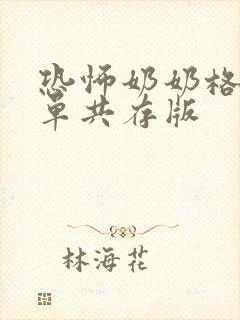 恐怖奶奶格
单共存版
林海花